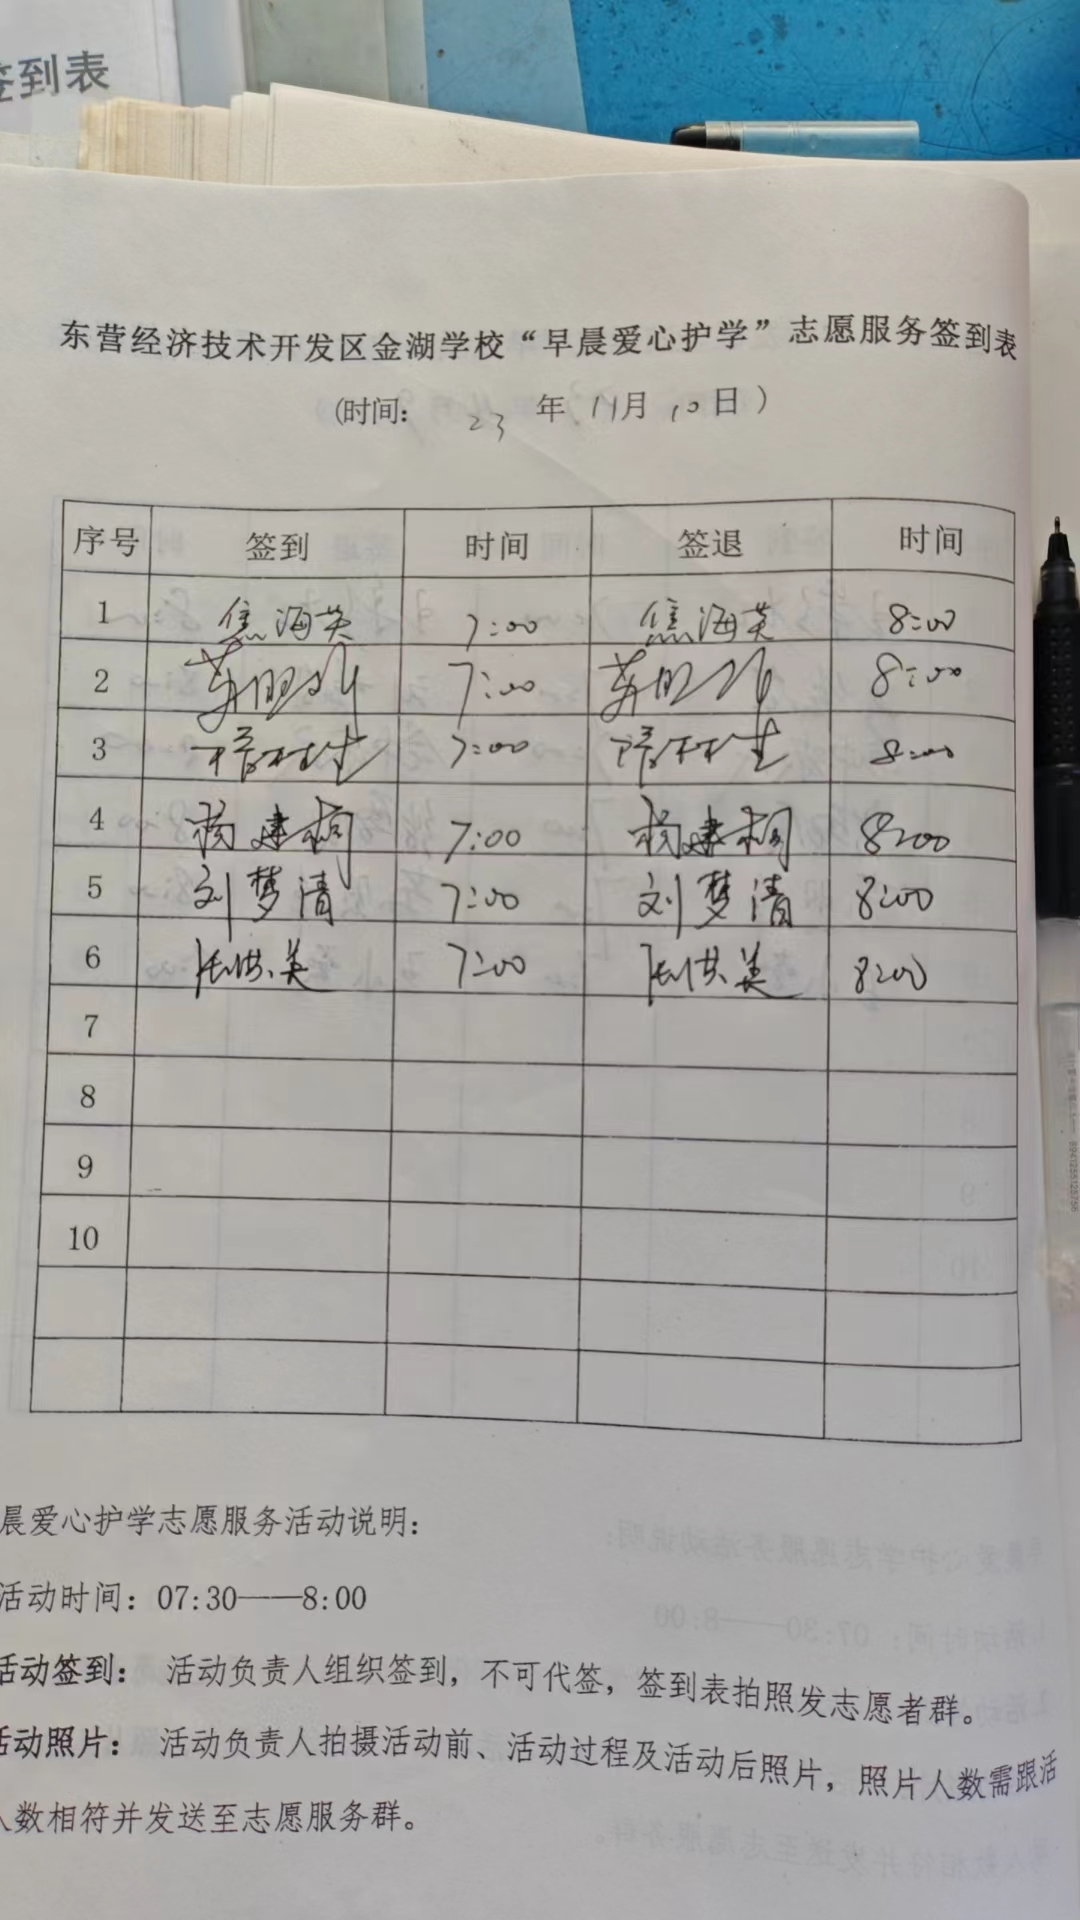 签到表
东营经济技术开发区金湖学校“早晨爱心护学”志愿服务签到表
(时间: 23 年 11月 10日)
序号 签到 时间 签退 时间
1 焦海英 7:00 焦海英 8:00
2 7:00 8:00
3 7:00 8:00
4 杨建桐 7:00 杨建桐 8:00
5 刘梦清 7:00 刘梦清 8:00
6 7:00 8:00
7
8
9
10
晨爱心护学志愿服务活动说明:
活动时间: 07:30——8:00
活动签到: 活动负责人组织签到, 不可代签, 签到表拍照发志愿者群。
活动照片: 活动负责人拍摄活动前、活动过程及活动后照片, 照片人数需跟活
人数相符并发送至志愿服务群。